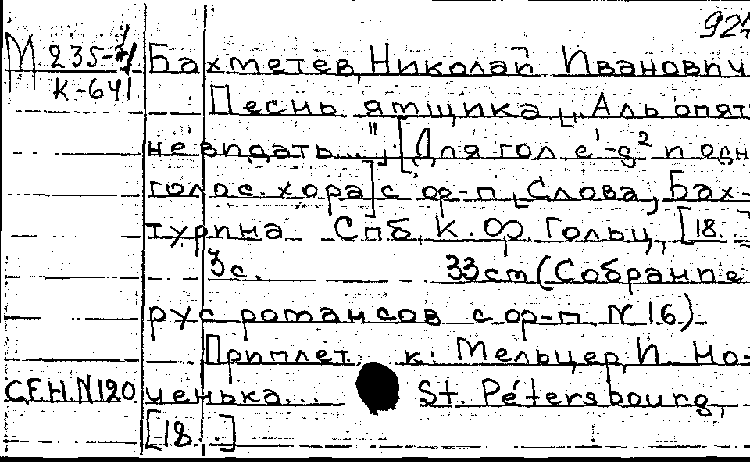 924
М 235-7/ Бахметев, Николай Иванович
К-641 Песнь ямщика „Аль опят
не видать...", [Для гол e¹-g² и одн
голос. хора] с фр-п [Слова, Бах-
турина Спб К. Ф. Гольц, [18..
3с. 33cm (Собрание
рус романсов с фр-п N 16)
Приплет. к: Мельцер, И. Но-
С.Е.Н. N120 ченька... St. Pétersbourg,
[18..]